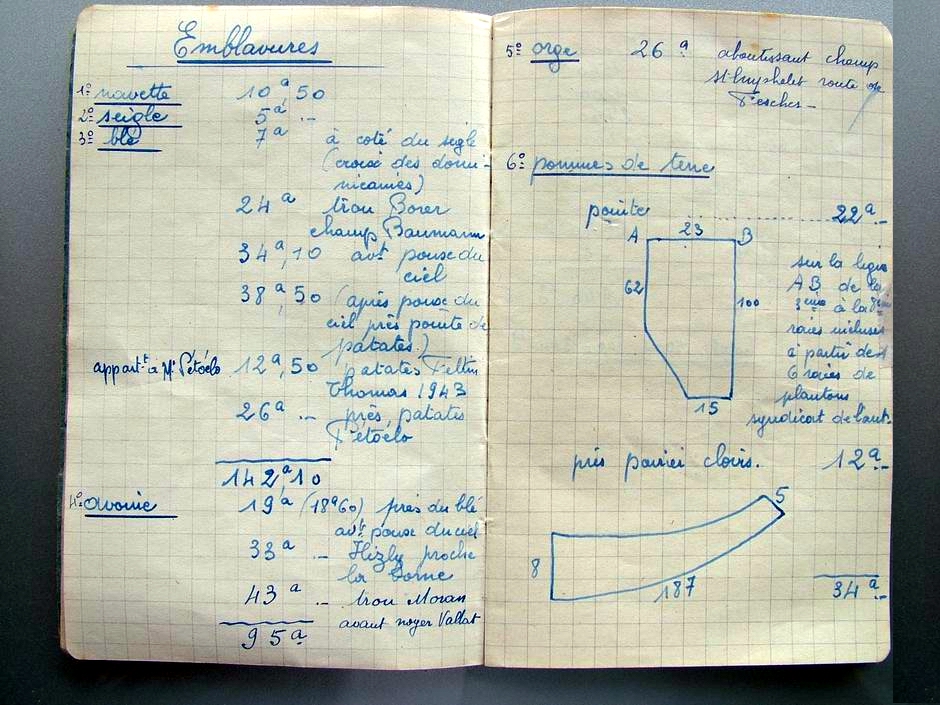 Emblavures
1º navette 10ª 50
2º seigle 5ª ..
3º blé 7ª à coté du seigle
(croix des domi-
nicaines)
24ª trou Borer
champ Baumann
34ª,10 avt pousse du
ciel
38ª,50 (après pousse du
ciel près pointe de
patates.)
appartt à Mr Pétoélo 12ª,50 patates Feltin
Thomas 1943
26ª .. près patates
Pétoélo
142ª10
4º avoine 19ª (18ª60) près du blé
avt pousse du ciel
33ª .. Hizly proche
la borne
43ª .. trou Moran
avant noyer Vallat
95ª
5º orge 26ª aboutissant champ
route de
Fesches -
6º pommes de terre
pointe 22ª.-
A 23 B
62
100
15
sur la ligne
AB de la
3ème à la 8ème
raies incluses
à partir des
6 raies de
plantons
syndicat de l'aut.
près poirier clovis. 12ª.-
5
8
187
34ª.-